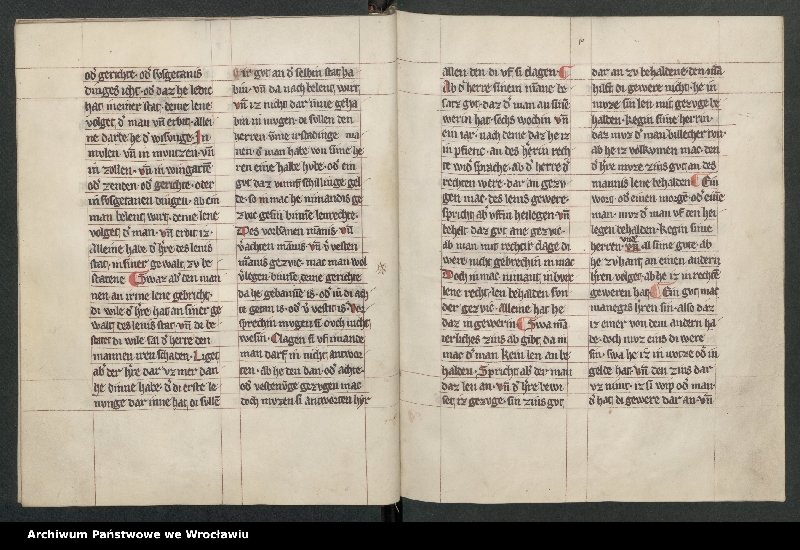 od gerichte · od sösgetanis
dinges icht · od daz he ledic
hat in einer stat · deme lene
volget d man vn erbit · allei
ne darbe he d wisunge · In
mulen · vn in muntzen · vn
in zollen · vn in wingarte
od zenden · od gerichte · oder
in sösgetanen dingen · ab ein
man belent wirt · deme lene
volget d man · vn erbit iz ·
Alleine habe d h're des lenis
stat · in siner gewalt zv be
statene Swaz ab' den man
nen an irme lene gebricht ·
di wile d h're hat an siner ge
walt des lenis stat · vn di be
statet di wile sal d herre den
mannen iren schaden · Liget
ab' der h're dar vz mer dan
he dinne habe · d di erste le
nunge dar inne hat di sulle
ir gut an d selben stat ha
bin · vn da nach belent wirt
vn iz nicht dar inne geha
bin in mugen · di sullen den
herren inne irstadinge ma
nen · d man habe von sine he
ren eine halbe hube · od ein
gut daz vumf schillinge gel
de · so in mac he nimandis ge
zvic gesin binne lenrechte ·
Des vorbanen manis · vn
v'achten manis · vn v'vesten
manis gezvic · mac man wol
v'legen · dinste · deme gerichte
da he gebannē is · od in di ach
te getan is · od v'vestit is · Vor
sprechin mugen si ouch nicht
wesin · Clagen si vf imande
man darf in nicht antwor
ten · ab he den ban · od achte ·
od vestenūge gezvgen mac
doch muzen si antworten hir
allen den di vf si clagen ·
Ab d herre sinem māne be
satz gut · daz d man an sine
werin hat · sechs wochin vn
ein iar · nach deme daz he iz
in pflente · an des herrin rech
te wid'sprache · ab d herre d
rechten were · dar an gezv
gen mac · des lenis gewere ·
spricht ab' vf in heilegen · vn
behelt daz gut ane gezvic ·
ab man mit rechtir clage di
were nicht gebrechin in mac
Doch in mac nimant · in bvre
lene recht · len behalden sun
der gezvic · alleine hat he
daz in gewerin Swa mā
ierliches zins ab gibt · da in
mac d man kein len an be
halden · Spricht ab' der man
daz len an · vn d h're bewi
set iz gezvge · sin zins gut
dar an zv behaldene · den mā
hilft di gewere nicht · he in
muze sin len mit gezvge be
halden · kegin sime herrin ·
daz muz d man billecher tvn ·
ab he iz volkvmen mac · den
d h're muze zins gut an des
mannis lene behalden Ein
wort · od einen morgē · od eine
man · muz d man vf den hei
legen behalden · kegin sime
herren · vnd al sine gute · ab
he zvhant an einen andern
h'ren volget · ab he iz in rechte
geweren hat Ein gut mac
manegis h'ren sin · also daz
iz einer von dem andern ha
be · doch muz eins di were
sin · swa he iz in nutze od in
gelde hat · vn den zins dar
vz nimt · iz si wip od man ·
d hat di gewere dar an · vn
Archiwum Państwowe we Wrocławiu